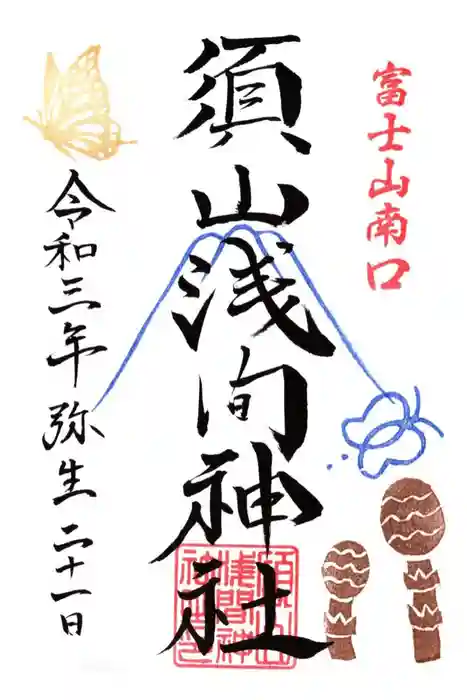 富士山南口
須山浅間神社
令和三年 弥生 二十一日